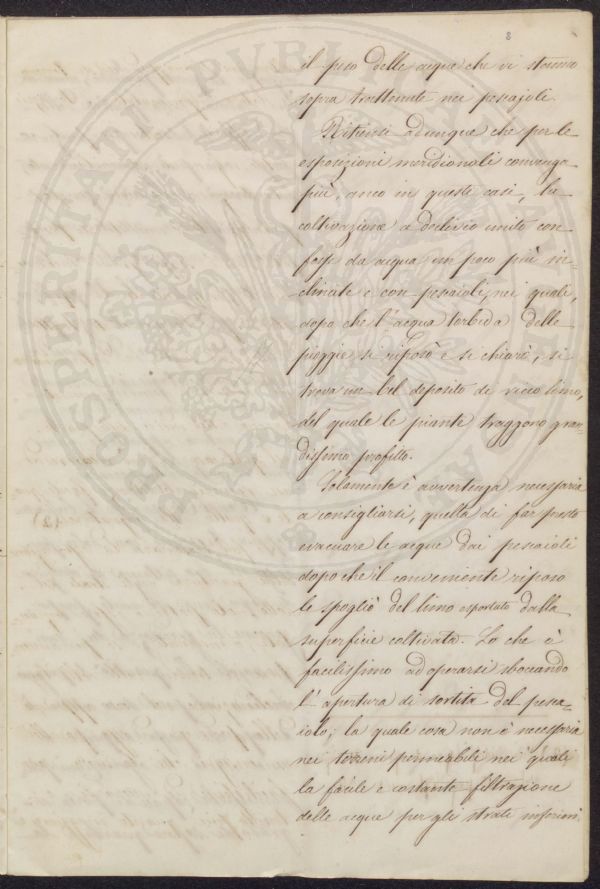 8
il peso delle acque che vi stanno
sopra trattenute nei pescajoli.
Ritiensi adunque che per le
esposizioni meridionali convenga
più, anco in questi casi, la
coltivazione a declivio unito con
fosse da acqua un poco più in-
clinate e con pescaioli, nei quali,
dopo che l'acqua torbida delle
pioggie si riposò e si chiarì, si
trova un bel deposito di ricco limo,
del quale le piante traggono gran-
dissimo profitto.
Solamente è avvertenza necessaria
a consigliarsi, quella di far presto
evacuare le acque dai pescaioli
dopo che il conveniente riposo
le spogliò del limo asportato dalla
superficie coltivata. Lo che è
facilissimo ad operarsi sboccando
l'apertura di sortita del pesca-
iolo; la quale cosa non è necessaria
nei terreni permeabili nei quali
la facile e costante filtrazione
delle acque per gli strati inferiori
PROSPERITATI PVBLICAE
(2)